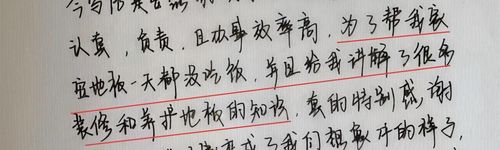 认真，负责，且办事效率高，为了帮我家
地板一天都没吃饭，并且给我讲解了很多
装修和养护地板的知识，真的特别感谢
变成了我们想象中的样子，